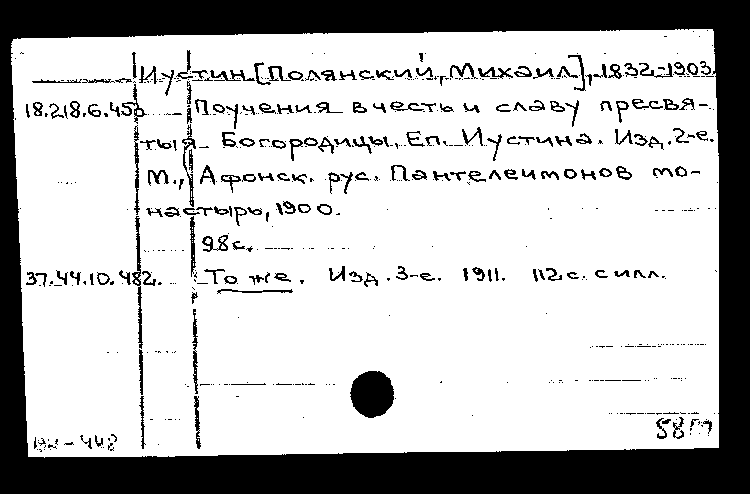 Иустин [Полянский, Михаил], 1832-1903.
18.218.6.45 Поучения в честь и славу пресвя-
тыя Богородицы, Еп. Иустина. Изд. 2-е.
М., Афонск. рус. Пантелеимонов мо-
настырь, 1900.
98 с.
37.44.10.482. То же. Изд. 3-е. 1911. 112 с. с илл.